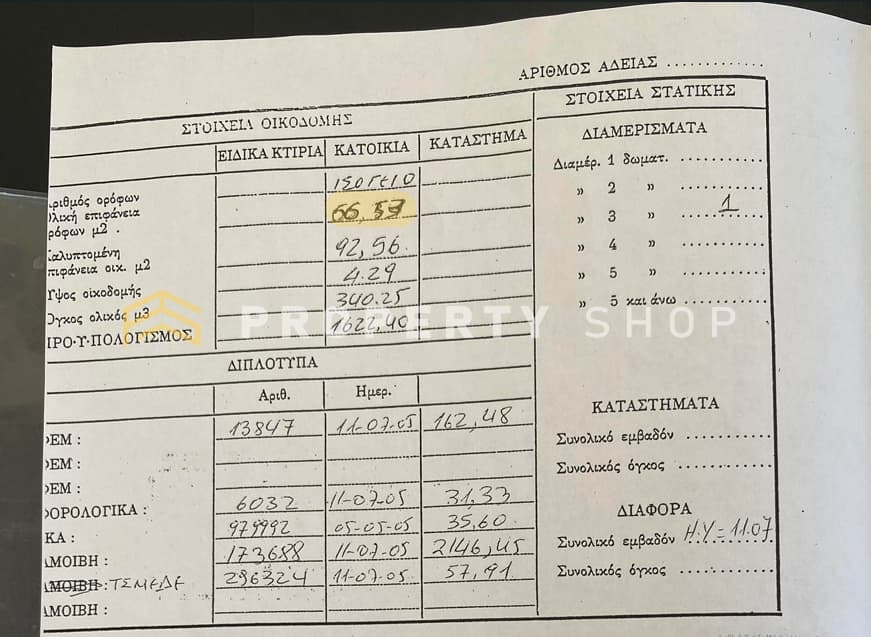 ΑΡΙΘΜΟΣ ΑΔΕΙΑΣ .............
ΣΤΟΙΧΕΙΑ ΟΙΚΟΔΟΜΗΣ
ΕΙΔΙΚΑ ΚΤΙΡΙΑ ΚΑΤΟΙΚΙΑ ΚΑΤΑΣΤΗΜΑ
ριθμός ορόφων ΙΣΟΓΕΙΟ
λική επιφάνεια
ρόφων μ2 . 66,57
αλυπτομένη
πιφάνεια οικ. μ2 92,56
Υψος οικοδομής 4.29
Ογκος ολικός μ3 340.25
ΠΡΟ·Υ·ΠΟΛΟΓΙΣΜΟΣ 1622,40
ΔΙΠΛΟΤΥΠΑ
Αριθ. Ημερ.
ΕΜ : 13847 11-07-05 162,48
ΕΜ :
ΕΜ :
ΦΟΡΟΛΟΓΙΚΑ : 6032 11-07-05 31,33
ΚΑ : 979992 05-05-05 35,60
ΑΜΟΙΒΗ : 173688 11-07-05 2146,45
ΑΜΟΙΒΗ : ΤΣΜΕΔΕ 296324 11-07-05 57,91
ΑΜΟΙΒΗ :
ΣΤΟΙΧΕΙΑ ΣΤΑΤΙΚΗΣ
ΔΙΑΜΕΡΙΣΜΑΤΑ
Διαμέρ. 1 δωματ. ............
» 2 »
» 3 » 1
» 4 » ............
» 5 » ............
» 5 και άνω ............
ΚΑΤΑΣΤΗΜΑΤΑ
Συνολικό εμβαδόν ............
Συνολικός όγκος ............
ΔΙΑΦΟΡΑ
Συνολικό εμβαδόν Η.Υ=11.07
Συνολικός όγκος ............
PROPERTY SHOP